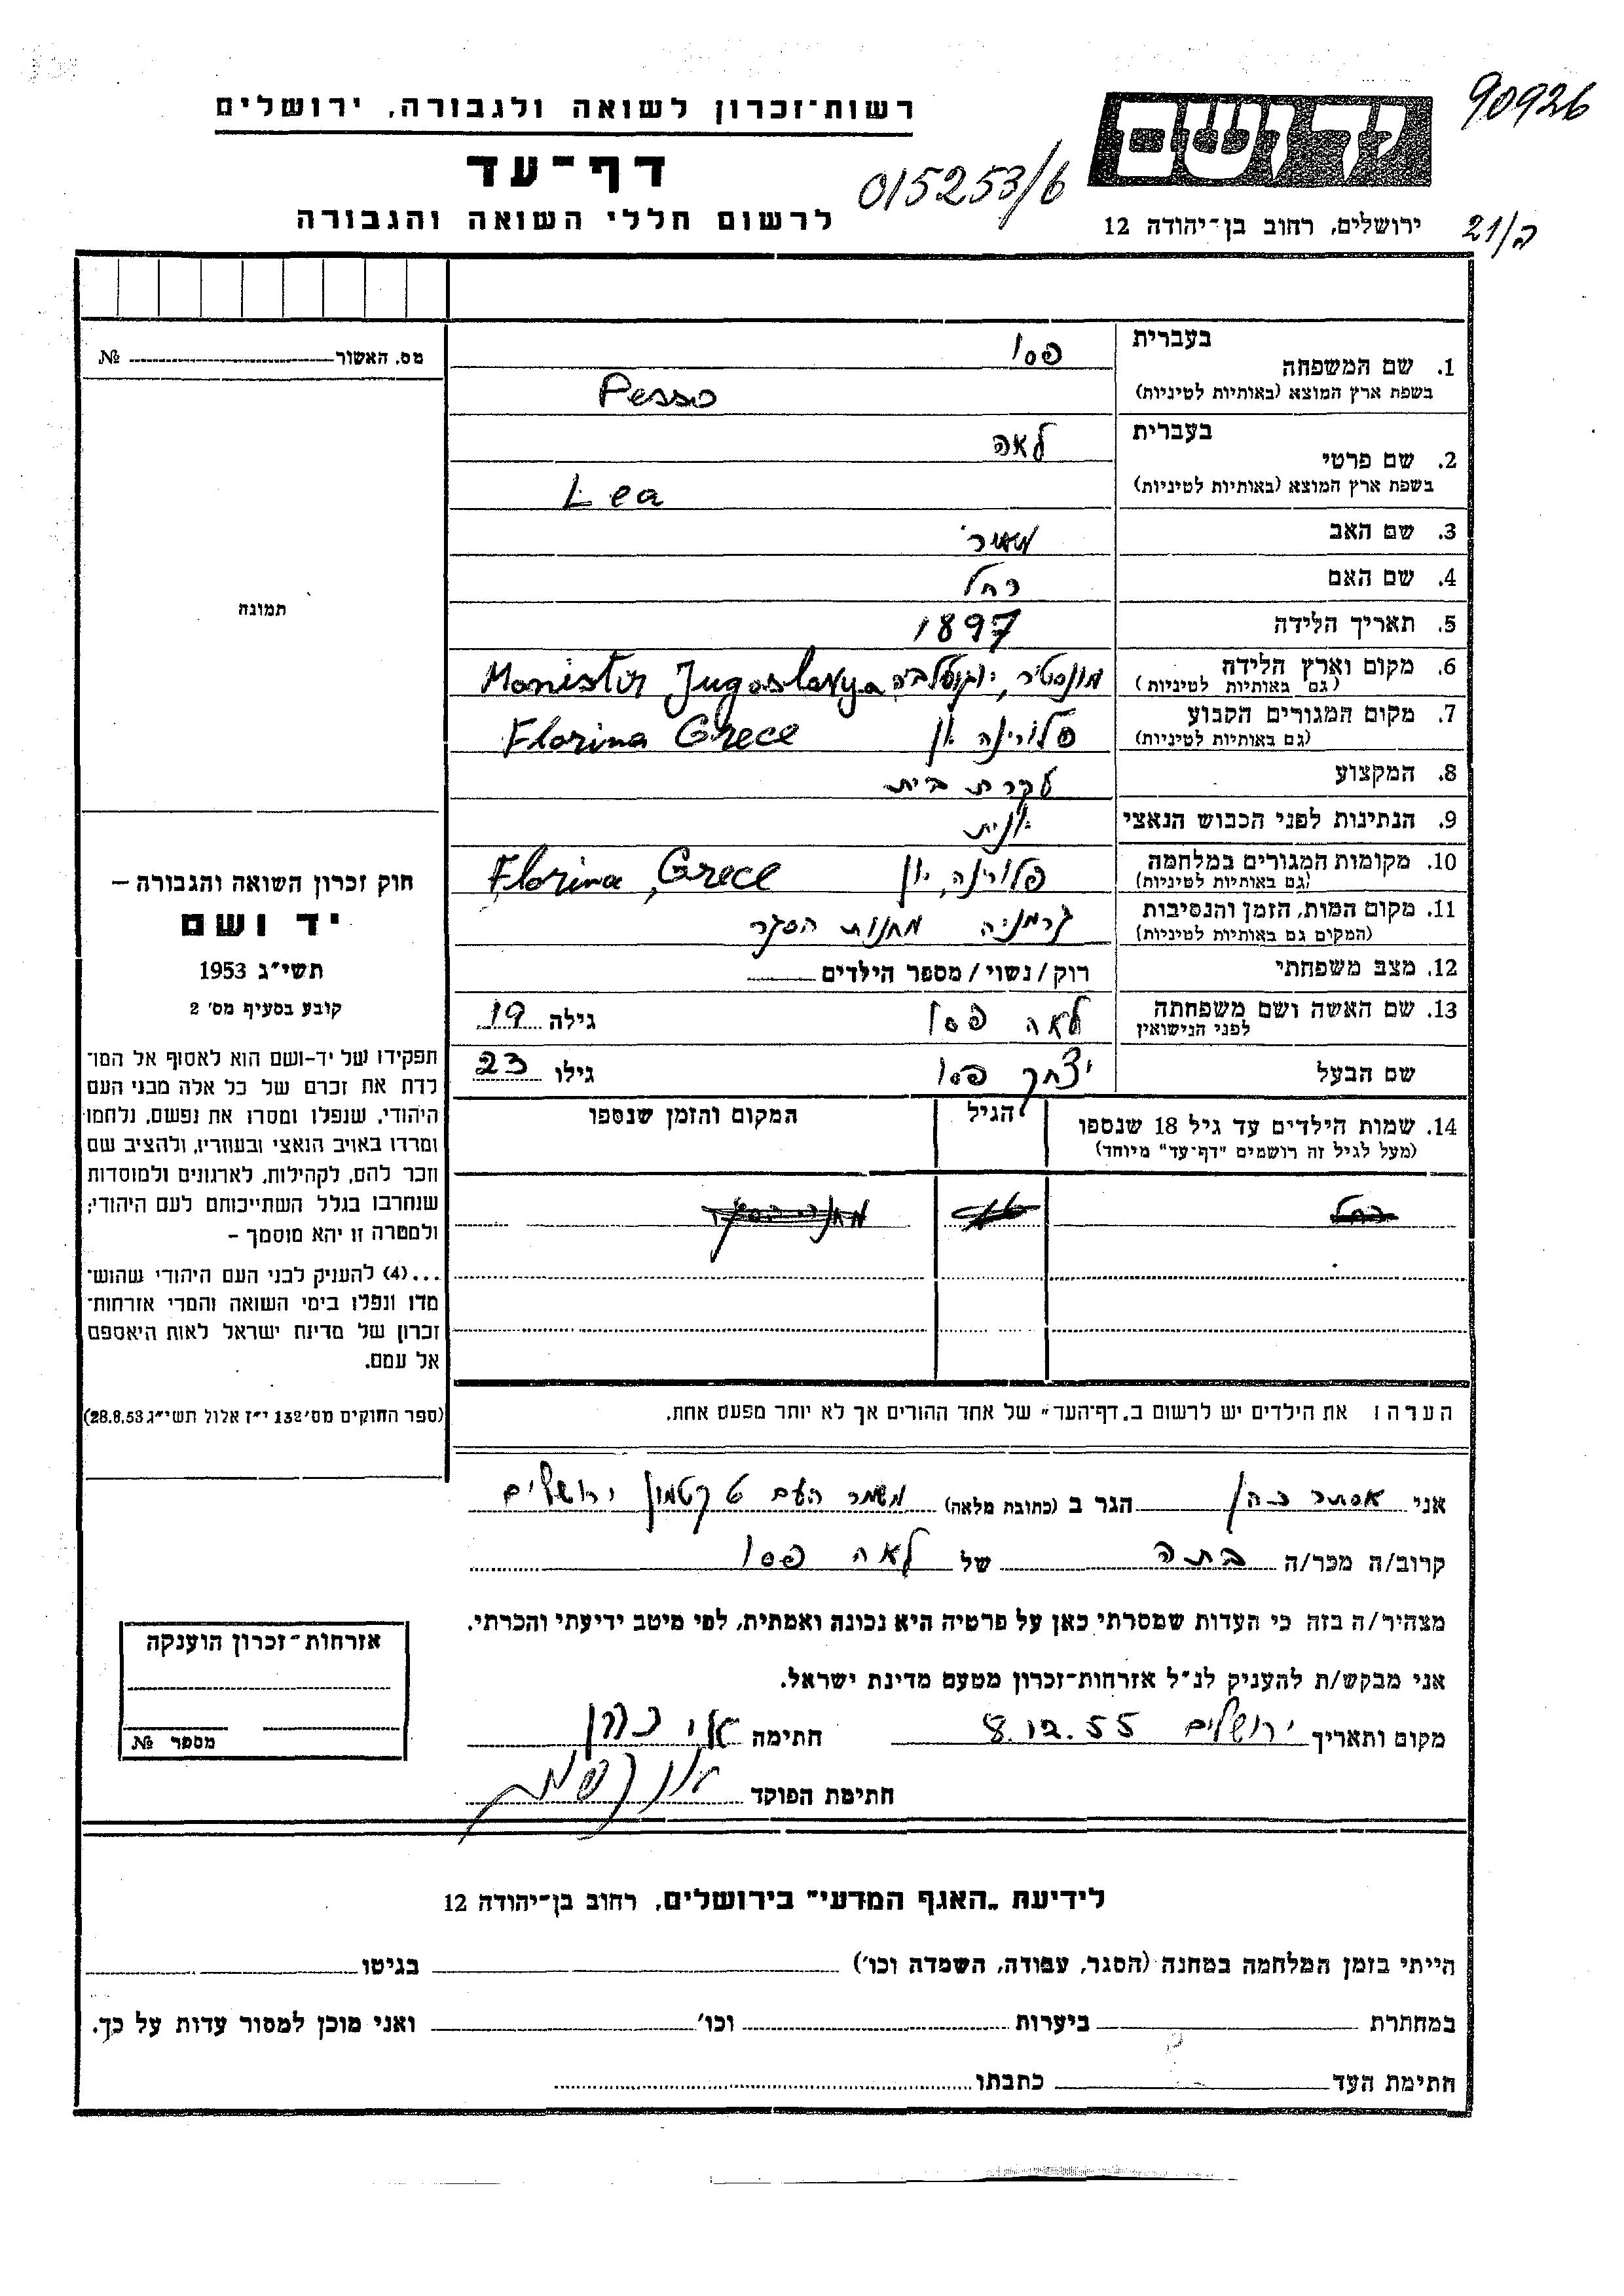 90926
רשות־זכרון לשואה ולגבורה, ירושלים
ידושם
דף־עד
015253/6
לרשום חללי השואה והגבורה
ירושלים, רחוב בן־יהודה 12
ה/21
בעברית
1. שם המשפחה
פסו
בשפת ארץ המוצא (באותיות לטיניות)
Pesso
בעברית
2. שם פרטי
לאה
בשפת ארץ המוצא (באותיות לטיניות)
Lea
3. שם האב מאיר
4. שם האם רחל
5. תאריך הלידה 1897
6. מקום וארץ הלידה
(גם באותיות לטיניות)
מונסטיר, יוגוסלביה Monistir Jugoslavya
7. מקום המגורים הקבוע
(גם באותיות לטיניות)
פלורינה יון Florina Grece
8. המקצוע עקרת בית
9. הנתינות לפני הכבוש הנאצי יונית
10. מקומות המגורים במלחמה
(גם באותיות לטיניות)
פלורינה, יון Florina, Grece
11. מקום המות, הזמן והנסיבות
(המקום גם באותיות לטיניות)
גרמניה מחנות הסגר
12. מצב משפחתי רוק/נשוי/מספר הילדים
13. שם האשה ושם משפחתה
לפני הנישואין
לאה פסו גילה 19
שם הבעל יצחק פסו גילו 23
14. שמות הילדים עד גיל 18 שנספו
(מעל לגיל זה רושמים "דף־עד" מיוחד)
הגיל
המקום והזמן שנספו
רחל
הערה: את הילדים יש לרשום ב„דף־העד" של אחד ההורים אך לא יותר מפעם אחת.
מס. האשור № 
תמונה
חוק זכרון השואה והגבורה –
יד ושם
תשי"ג 1953
קובע בסעיף מס' 2
תפקידו של יד-ושם הוא לאסוף אל המו־
לדת את זכרם של כל אלה מבני העם
היהודי, שנפלו ומסרו את נפשם, נלחמו
ומרדו באויב הנאצי ובעוזריו, ולהציב שם
וזכר להם, לקהילות, לארגונים ולמוסדות
שנחרבו בגלל השתייכותם לעם היהודי;
ולמטרה זו יהא מוסמך –
...(4) להעניק לבני העם היהודי שהוש־
מדו ונפלו בימי השואה והמרי אזרחות־
זכרון של מדינת ישראל לאות היאספם
אל עמם.
(ספר החוקים מס' 132 י"ז אלול תשי"ג 28.8.53)
אני אסתר כהן הגר ב (כתובת מלאה) משמר העם ט קטמון ירושלים
קרוב/ה מכר/ה בתה של לאה פסו
מצהיר/ה בזה כי העדות שמסרתי כאן על פרטיה היא נכונה ואמתית, לפי מיטב ידיעתי והכרתי.
אני מבקש/ת להעניק לנ"ל אזרחות־זכרון מטעם מדינת ישראל.
מקום ותאריך ירושלים 8.12.55 חתימה
חתימת הפוקד
אזרחות־זכרון הוענקה
מספר №
לידיעת „האגף המדעי" בירושלים, רחוב בן־יהודה 12
הייתי בזמן המלחמה במחנה (הסגר, עבודה, השמדה וכו') בגיטו
במחתרת ביערות וכו' ואני מוכן למסור עדות על כך.
חתימת העד כתבתו